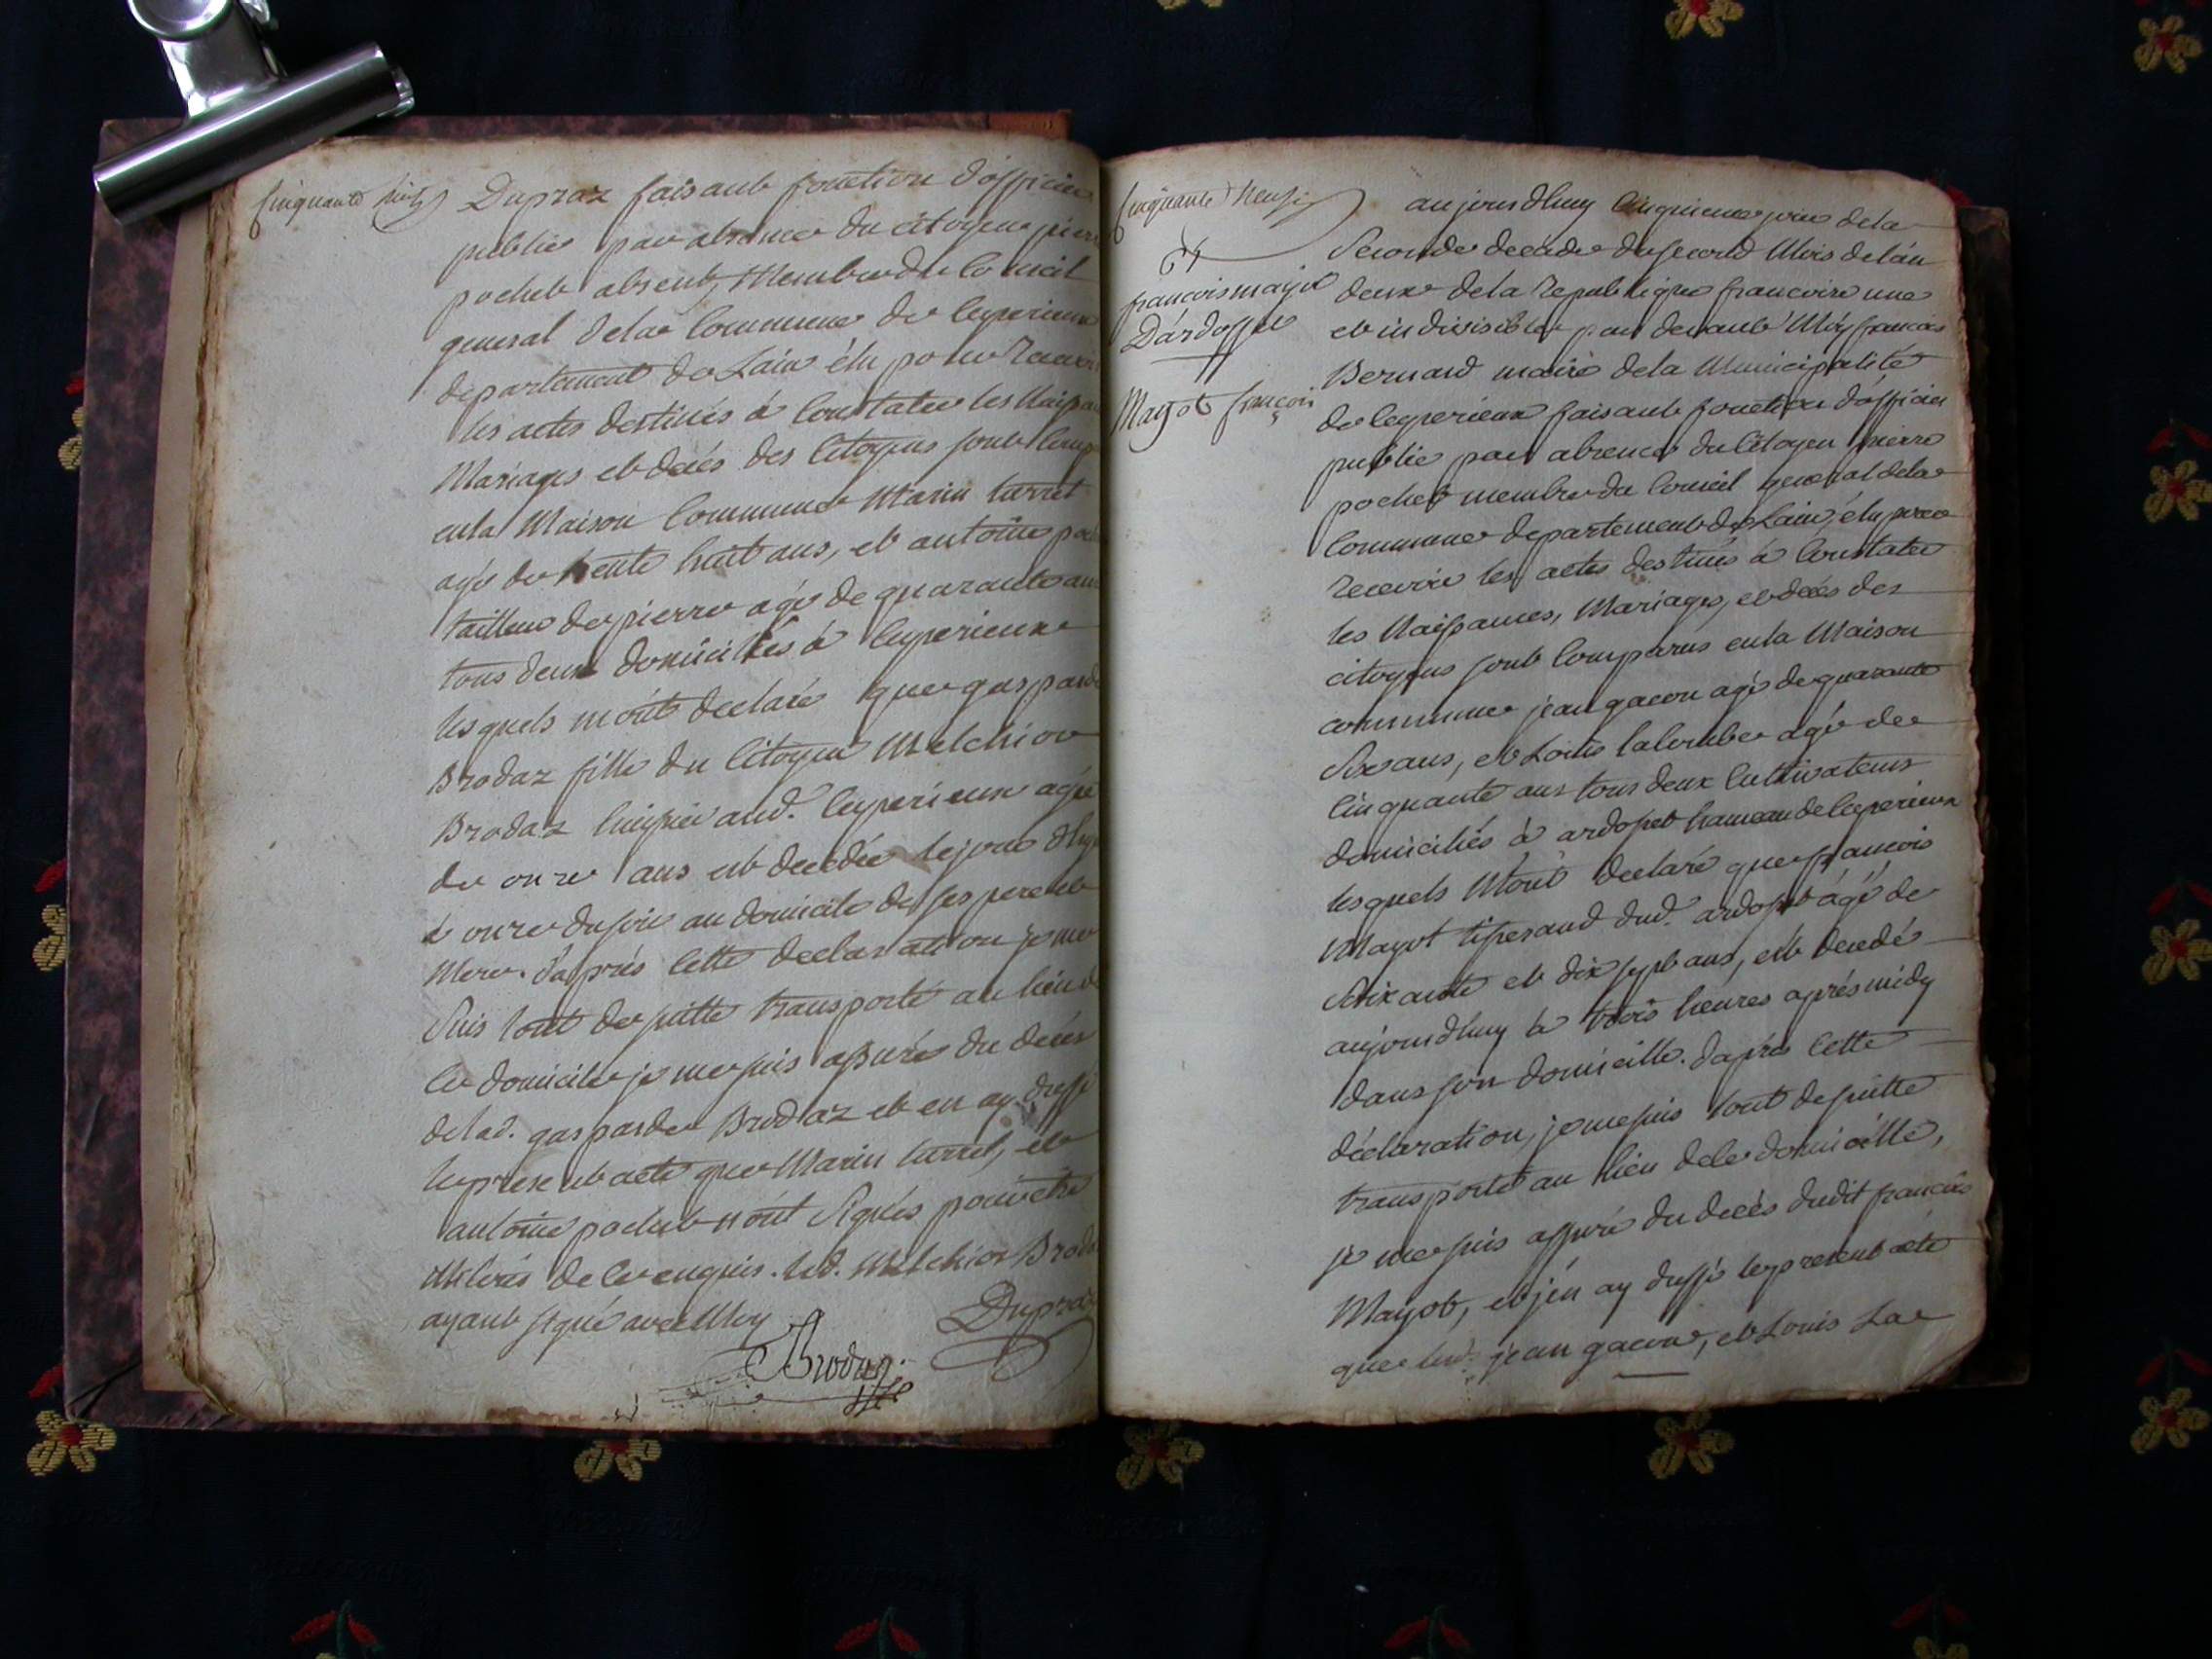 Cinquante huit
Dupraz faisant fonction d'officier
public par absence du citoyen pierre
pochet absent, Membre du Conseil
general dela Commune de Ceyzerieux
departement de Lain élu pour Recevoir
les actes destinés à Constater les Naissan
Mariages et decés des Citoyens sont Comp
enla Maison Commune Marin turrel
agé de trente huit ans, et antoine poch
tailleur de pierre agé de quarante ans
tous deux domiciliés à Ceyzerieux
lesquels m'ont declaré que gasparde
Brodaz fille du Citoyen Melchior
Brodaz huissier aud. Ceyzerieux agée
de onze ans est decedée le jour d'huy
à onze du soir au domicile de ses pere et
Mere. d'après cette declaration je me
suis tout de suitte transporté au lieu de
ce domicile je me suis assuré du decés
delad. gasparde Brodaz et en ay dressé
le present acte que Marin turrel, et
antoine pochet n'ont signés pour etre
illitérés de ce enquis. led. Melchior Broda
ayant signé avec Moy
Dupraz
Brodaz
Cinquante Neuf
françois mayot
D'ardosset
Mayot françois
aujourdhuy Cinquieme jour dela
seconde decade du second Mois de l'an
deux dela Republique francoise une
et indivisible par devant Moy francois
Bernard maire dela Municipalité
de Ceyzerieux faisant fonction d'officier
public par absence du Citoyen pierre
pochet membre du Conseil general dela
Commune departement de Lain, élu pour
recevoir les actes destinés à Constater
les Naissances, Mariages, et decés des
citoyens sont Comparus enla Maison
commune jean gacon agé de quarante
six ans, et Louis lacombe agé de
Cinquante ans tous deux Cultivateurs
domiciliés à ardosset hameau de Ceyzerieux
lesquels M'ont declaré que francois
Mayot tisserand dud. ardosset âgé de
soixante et dix sept ans, est decedé
aujourdhuy à trois heures aprés midy
dans son domicille. daprés Cette
déclaration, je me suis tout de suitte
transporté au lieu de ce domicille,
je me suis assuré du decés dudit francois
Mayot, et j'en ay dressé le present acte
que lesd. jean gacon, et Louis La